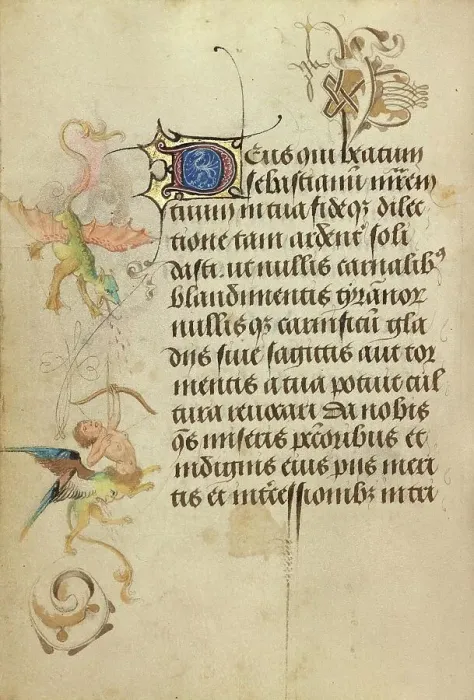 Deus qui beatum
sebastianū mr̄em
tuum in tua fide qꝫ dilec
tione tam ardent̾ soli
dasti. ut nullis carnalibꝰ
blandimentis tyrānoꝝ
nullis qꝫ carnificū gla
diis siue sagittis aut tor
mentis a tua potuit cul
tura reuocari Da nobis
q̄s miseris pcc̄oribus et
indignis eius piis meri
tis et int̾cessionibꝫ inter